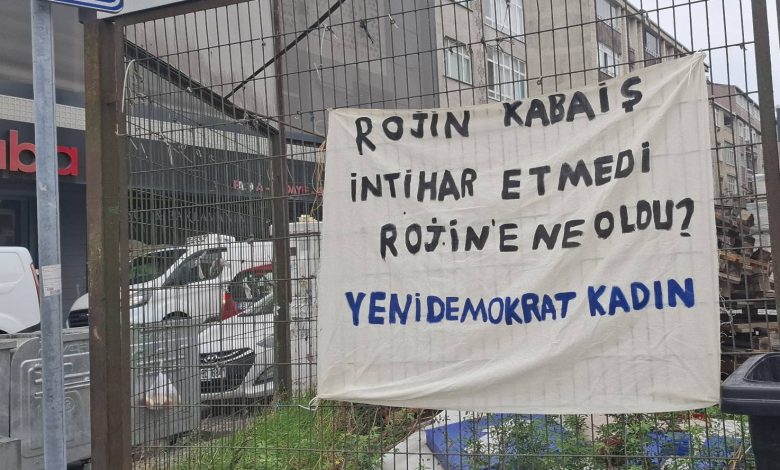 aba
ROJİN KABAİŞ
İNTİHAR ETMEDİ
ROJİN'E NE OLDU?
YENİ DEMOKRAT KADIN